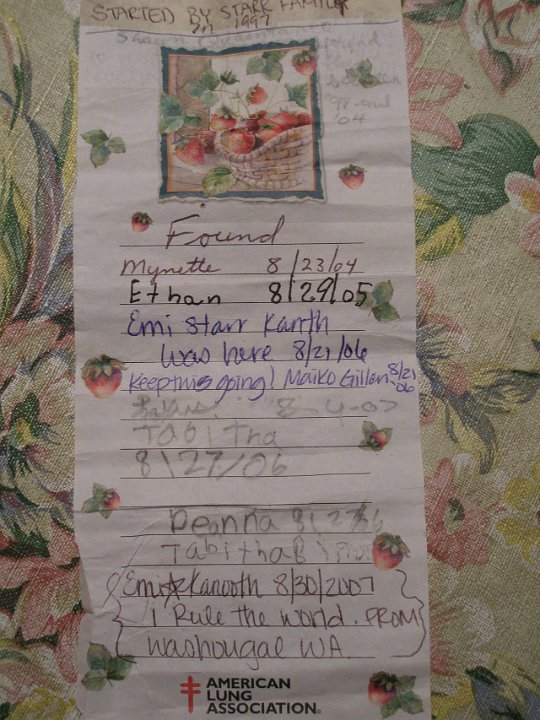 STARTED BY STARR FAMILY
in 1997
Sharon
found
97 and
04
Found
Mynette 8/23/04
Ethan 8/29/05
Emi Starr Kanth
was here 8/21/06
Keep this going! Maiko Gillen 8/21
06
8-4-07
TabiTha
8\27/06
Deanna 8\27/06
TabithaB
Emi Kanooth 8/30/2007
I Rule the world. FROM
Washougal WA.
AMERICAN
LUNG
ASSOCIATION®